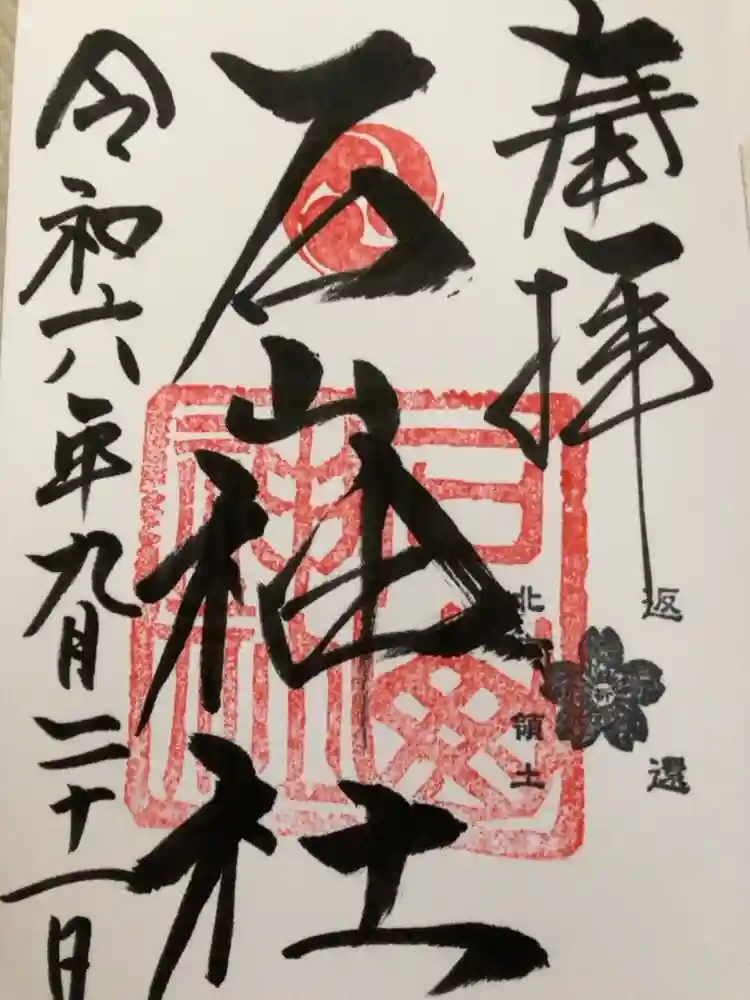 奉拝
返還
北方領土
石山神社
令和六年九月二十一日